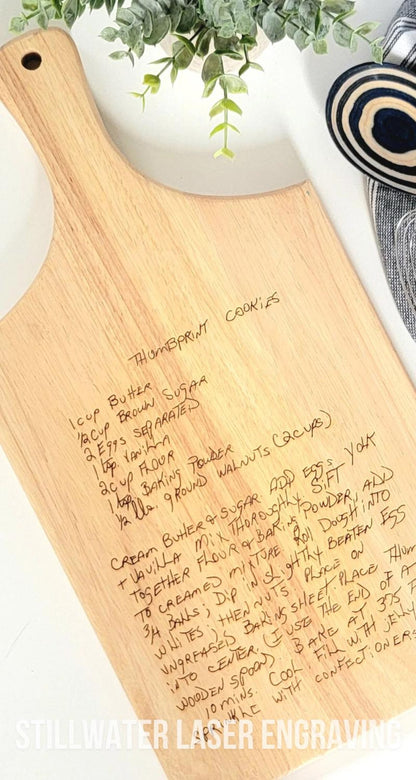 THUMBPRINT COOKIES
1 CUP BUTTER
1/2 CUP BROWN SUGAR
2 EGGS SEPARATED
1 tsp VANILLA
2 CUP FLOUR
1 tsp BAKING POWDER
1/2 lb GROUND WALNUTS (2 CUPS)
CREAM BUTTER & SUGAR ADD EGGS YOLK
+ VANILLA MIX THOROUGHLY SIFT
TOGETHER FLOUR & BAKING POWDER, ADD
TO CREAMED MIXTURE ROLL DOUGH INTO
3/4 BALLS; DIP IN SLIGHTLY BEATEN EGG
WHITES; THEN NUTS PLACE ON
UNGREASED BAKING SHEET PLACE THUM
INTO CENTER. (I USE THE END OF A
WOODEN SPOON) BAKE AT 375 F
10 MINS. COOL FILL WITH JELLY
SPRINKLE WITH CONFECTIONERS
STILLWATER LASER ENGRAVING